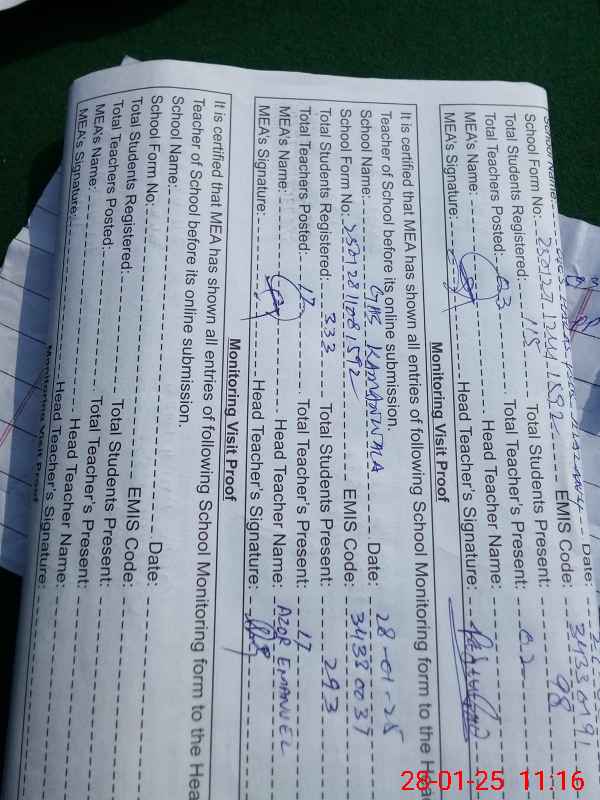 School Form No: 2501271244 1592 EMIS Code: 34330191
Total Students Registered: 115 Total Students Present: 98
Total Teachers Posted: 03 Total Teacher's Present: 02
MEA's Name: Head Teacher Name:
MEA's Signature: Head Teacher's Signature:
Monitoring Visit Proof
It is certified that MEA has shown all entries of following School Monitoring form to the Hea
Teacher of School before its online submission.
School Name: Date: 28-01-25
School Form No: 25012811081592 EMIS Code: 34330037
Total Students Registered: 333 Total Students Present: 293
Total Teachers Posted: 17 Total Teacher's Present: 17
MEA's Name: Head Teacher Name: AZOR EMANUEL
MEA's Signature: Head Teacher's Signature:
Monitoring Visit Proof
It is certified that MEA has shown all entries of following School Monitoring form to the Hea
Teacher of School before its online submission.
School Name: Date:
School Form No: EMIS Code:
Total Students Registered: Total Students Present:
Total Teachers Posted: Total Teacher's Present:
MEA's Name: Head Teacher Name:
MEA's Signature: Head Teacher's Signature:
Monitoring Visit Proof
28-01-25 11:16